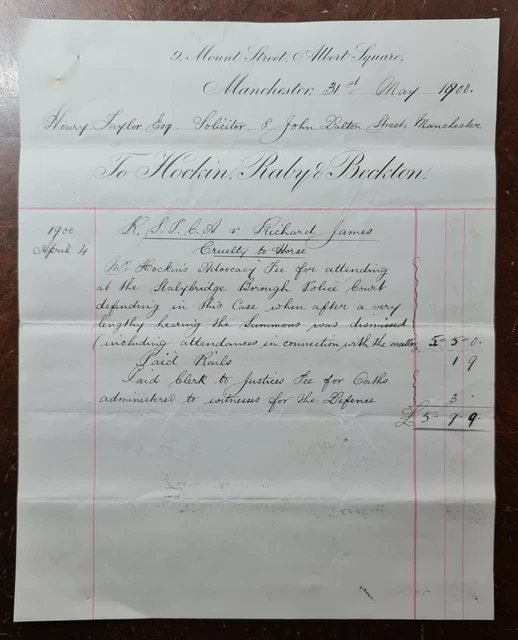 9. Mount Street, Albert Square,
Manchester, 31st May 1900.
Henry Taylor Esq Solicitor 8 John Dalton Street, Manchester
To Hockin, Raby & Beckton.
1900 R.S.P.C.A v Richard James
April 4 Cruelty to Horse
Mr Hockin's Advocacy Fee for attending
at the Stalybridge Borough Police Court
defending in this Case when after a very
lengthy hearing the Summons was dismissed
(including attendances in connection with the matter 5 5 0.
Paid Rails 1 9
Paid Clerk to Justices Fee for Oaths
administered to witnesses for the Defence 3 .
£ 5 9 9